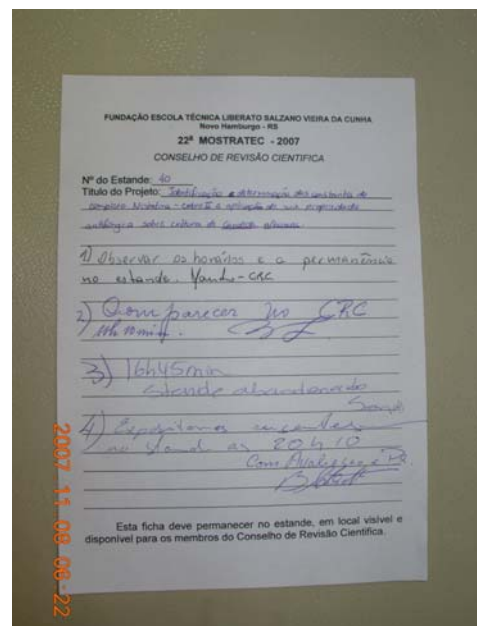 FUNDAÇÃO ESCOLA TÉCNICA LIBERATO SALZANO VIEIRA DA CUNHA
Novo Hamburgo - RS
22ª MOSTRATEC - 2007
CONSELHO DE REVISÃO CIENTIFICA
Nº do Estande: 40
Titulo do Projeto: Identificação e determinação das constantes do
complexo Nistatina - e aplicação de sua propriedade
antifúngica sobre cultura de
1) Observar os horários e a permanência
no estande. - CRC
2) Comparecer no CRC
3) 16h45min
Stande abandonado
4) Expositores ausentes
no stand as 20h10
Esta ficha deve permanecer no estande, em local visível e
disponível para os membros do Conselho de Revisão Científica.
2007 11 08 06:22